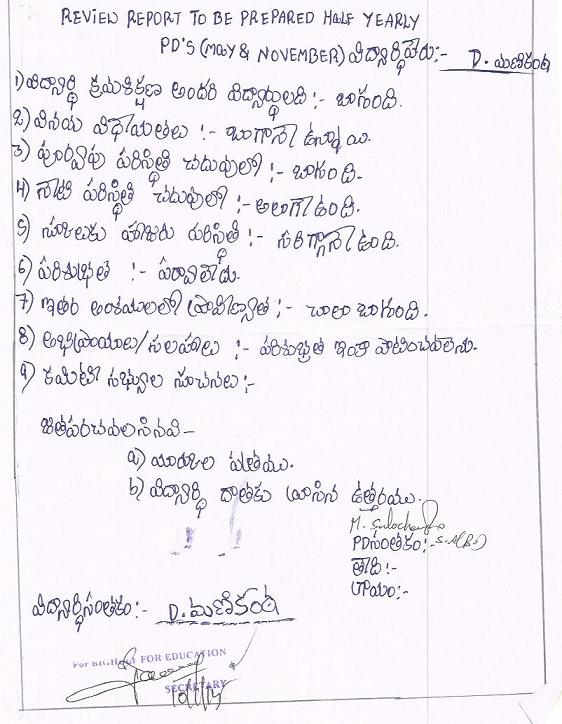 REVIEW REPORT TO BE PREPARED HALF YEARLY
PD'S (MAY & NOVEMBER) విద్యార్థిపేరు:- D. మణికంఠ
1) విద్యార్థి క్రమశిక్షణ అందరి విద్యార్థులది :- బాగుంది.
2) వినయ విధేయతలు :- బాగానే ఉన్నాయి.
3) పూర్వపు పరిస్థితి చదువులో :- బాగుంది.
4) నేటి పరిస్థితి చదువులో :- అలాగే ఉంది.
5) స్కూలుకు హాజరు పరిస్థితి :- సరిగ్గానే ఉంది.
6) పరిశుభ్రత :- పరవాలేదు.
7) ఇతర అంశములలో ప్రావీణ్యత :- చాలా బాగుంది.
8) అభిప్రాయాలు/సలహాలు :- పరిశుభ్రత ఇంకా పాటించవలెను.
9) కమిటీ సభ్యుల సూచనలు :-
జతపరచవలసినవి -
a) మార్కుల పత్రము.
b) విద్యార్థి దాతకు రాసిన ఉత్తరము.
PDసంతకం:-
తేది:-
గ్రామం:-
విద్యార్థిసంతకం:- D. మణికంఠ
FOR EDUCATION
SECRETARY